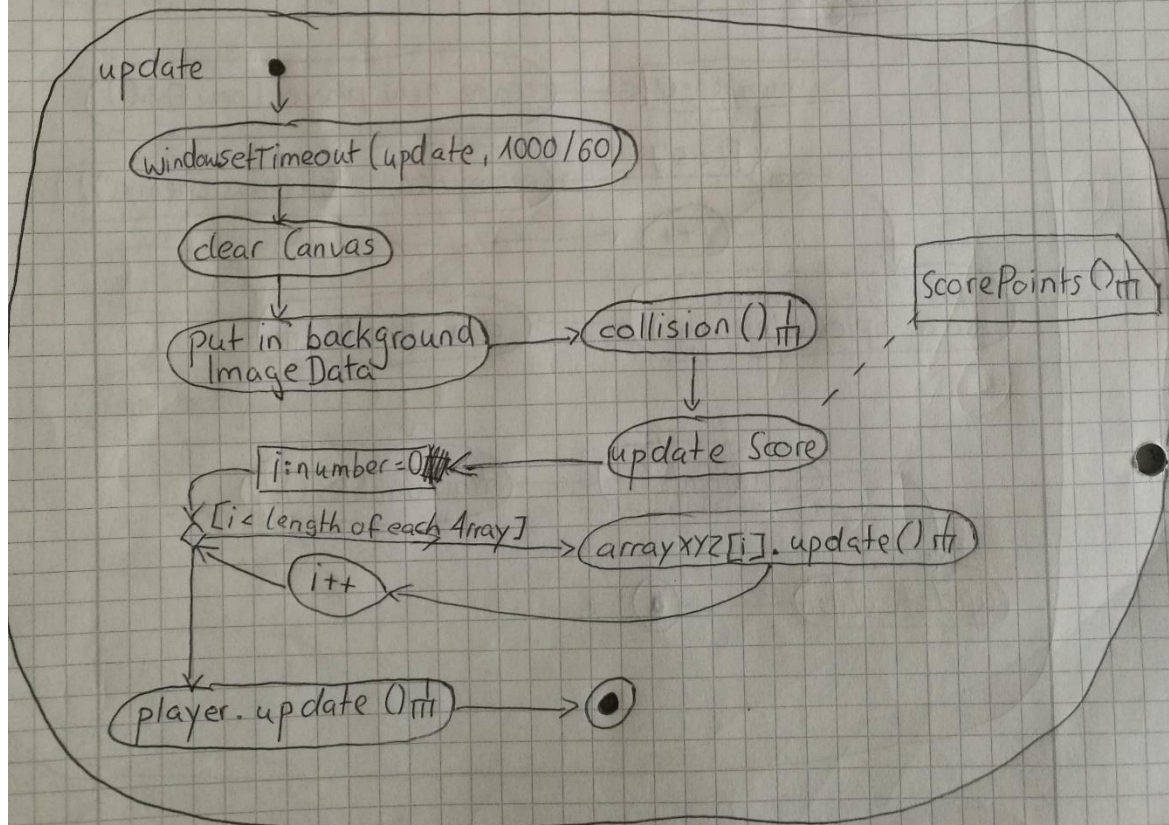 update
windowsetTimeout (update, 1000/60)
clear Canvas
put in background
ImageData
collision ()
ScorePoints ()
update Score
i:number=0
[i < length of each Array]
arrayXYZ[i].update()
i++
player.update ()